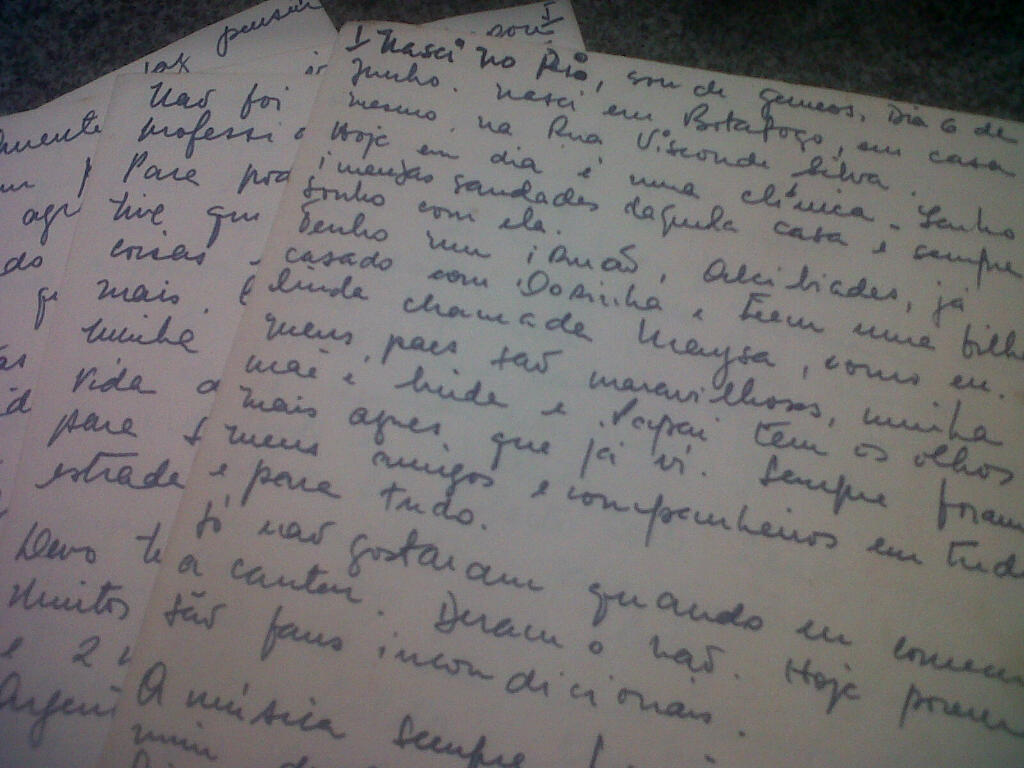 I
Nasci no Rio, sou de gemeos, Dia 6 de
Junho. Nasci em Botafogo, em casa
mesmo, na Rua Visconde Silva.
Hoje em dia é uma clínica. Tenho
imensas saudades daquela casa e sempre
sonho com ela.
Tenho um irmão, Alcibiades, já
casado com Dosinha e teem uma filha
linda chamada Maysa, como eu.
Meus paes são maravilhosos, minha
mãe é linda e Papai tem os olhos
mais azues que já vi. Sempre foram
meus amigos e companheiros em tudo
e para tudo.
Só não gostaram quando eu comecei
a cantar. Deram o não. Hoje porem
são fans incondicionais.
A música sempre
mim
Não foi
professi
Para
tive que
coisas
mais
minha
vida
para
estrada
Devo
Muitos
e 2
Argen
amente
do
pensar
sou